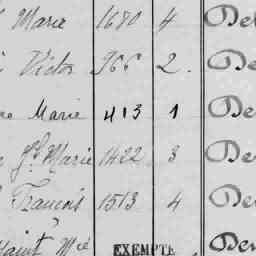 Marie 1680 4 De
Victor 966 2. De
Marie 413 1 De
Jh Marie 1422 3 De
François 1513 4 De
Mié EXEMPTE Der